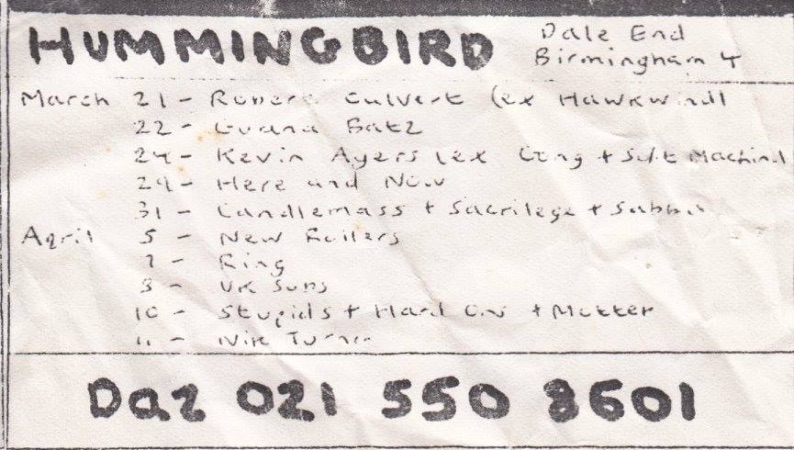 HUMMINGBIRD
Dale End
Birmingham 4
March 21 - Robert Culvert (ex Hawkwind)
22 - Guana Batz
24 - Kevin Ayers (ex Gong + Soft Machine)
29 - Here and Now
31 - Candlemass + Sacrilege + Sabbat
April 5 - New Rollers
7 - Ring
8 - UK Subs
10 - Stupids + Hard Ons +
11 - Nik Turner
Daz 021 550 8601